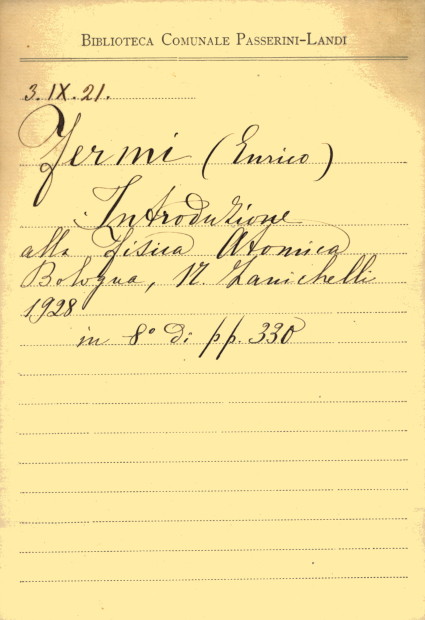 BIBLIOTECA COMUNALE PASSERINI-LANDI
3. IX. 21.
Fermi (Enrico)
Introduzione
alla Fisica Atomica
Bologna, N. Zanichelli
1928
in 8° di pp. 330